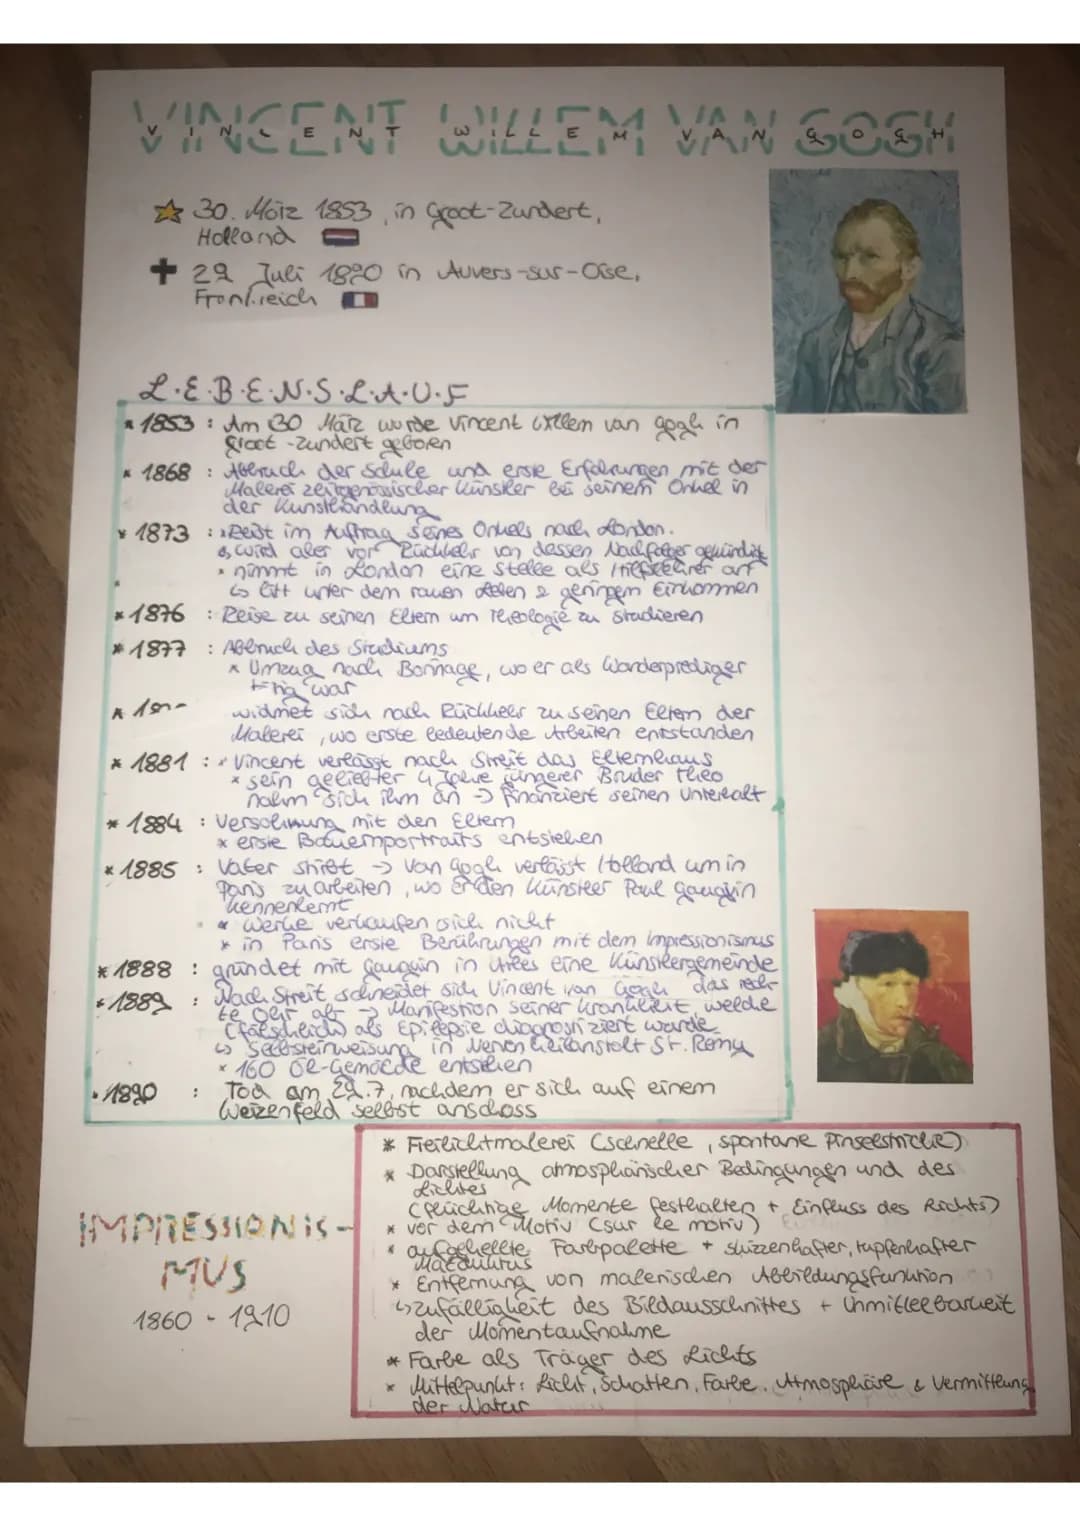 VINCENT WILLEM VAN GOGH
30. März 1853, in Groot-Zundert,
Holland
29 Juli 1890 in Auvers-sur-Oise,
Frankreich
L.E.B.E.N.S.L.A.U.F
* 1853 : Am 30 März wurde Vincent Willem van gogh in
Groot-Zundert geboren
* 1868 : Abbruch der Schule und erste Erfahrungen mit der
Malerei zeitgenössischer Künstler bei seinem Onkel in
der Kunsthandlung
* 1873 : * Reist im Auftrag seines Onkels nach London.
↳ wird aber vor Rückkehr von dessen Nachfolger gekündigt
* nimmt in London eine Stelle als Hilfslehrer an
↳ litt unter dem rauen & geringem Einkommen
* 1876 : Reise zu seinen Eltern um Theologie zu studieren
* 1877 : Abbruch des Studiums
* Umzug nach Borinage, wo er als Wanderprediger
tätig war
* widmet sich nach Rückkehr zu seinen Eltern der
Malerei, wo erste bedeutende Arbeiten entstanden
* 1881 : * Vincent verlässt nach Streit das Elternhaus
* sein geliebter 4 Jahre jüngerer Bruder Theo
nahm sich ihm an → finanziert seinen Unterhalt
* 1884 : Versöhnung mit den Eltern
* erste Bauernportraits entstehen
* 1885 : Vater stirbt → Van Gogh verlässt Holland um in
Paris zu arbeiten, wo er den Künstler Paul Gauguin
kennenlernt
* Werke verkaufen sich nicht
* in Paris erste Berührungen mit dem Impressionismus
* 1888 : gründet mit Gauguin in Arles eine Künstlergemeinde
* 1889 : Nach Streit schneidet sich Vincent van Gogh das rech-
te Ohr ab → Manifestion seiner Krankheit, welche
(fälschlich) als Epilepsie diagnostiziert wurde
↳ Selbsteinweisung in Nervenheilanstalt St. Remy
* 160 Öl-Gemälde entstehen
* 1890 : Tod am 29.7, nachdem er sich auf einem
Weizenfeld selbst anschoss
* Freilichtmalerei (schnelle, spontane Pinselstriche)
* Darstellung atmosphärischer Bedingungen und des
Lichtes
(flüchtige Momente festhalten + Einfluss des Lichts)
* vor dem Motiv (sur le motiv)
* aufgehellte Farbpalette + skizzenhafter, tupfenhafter
Malduktus
* Entfernung von malerischen Abbildungsfunktion
↳ Zufälligkeit des Bildausschnittes + Unmittelbarkeit
der Momentaufnahme
* Farbe als Träger des Lichts
* Mittelpunkt: Licht, Schatten, Farbe, Atmosphäre & Vermittlung
der Natur
IMPRESSIONIS-
MUS
1860 - 1910